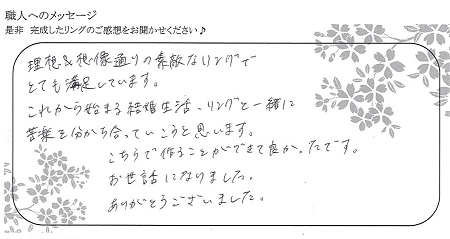 職人へのメッセージ
是非 完成したリングのご感想をお聞かせください♪
理想&想像通りの素敵なリングで
とても満足しています。
これから始まる結婚生活、リングと一緒に
苦楽を分かち合っていこうと思います。
こちらで作ることができて良かったです。
お世話になりました。
ありがとうございました。